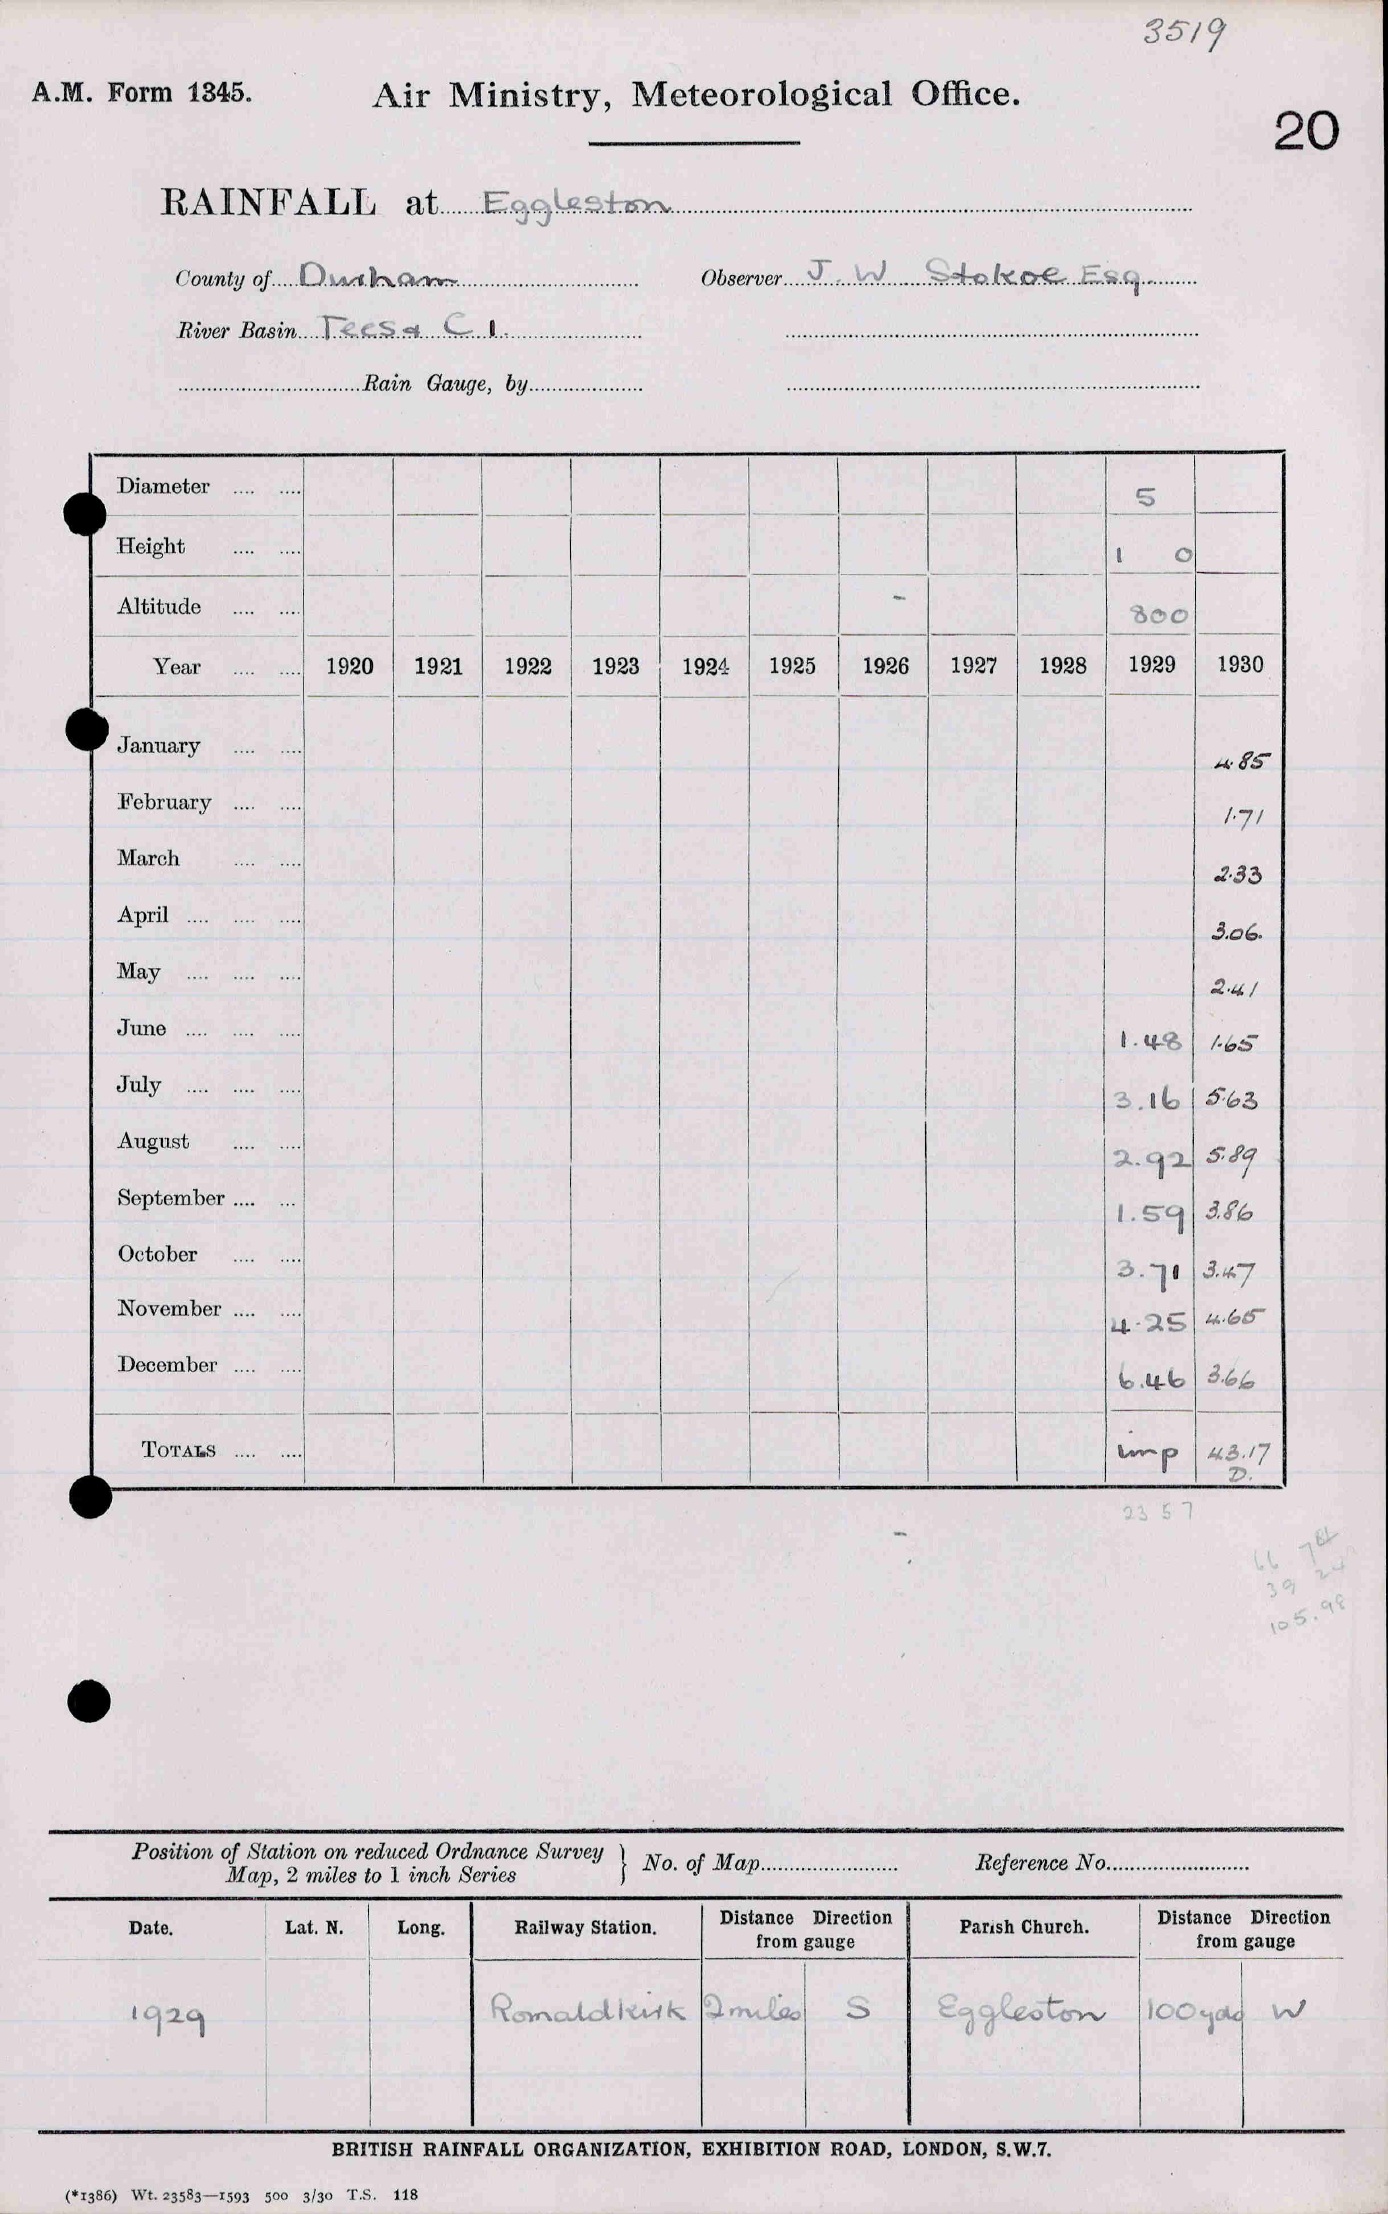 3519
A.M. Form 1345. Air Ministry, Meteorological Office.
20
RAINFALL at Eggleston
County of Durham Observer J. W. Stokoe Esq.
River Basin Tees & C 1.
Rain Gauge, by
Diameter 5
Height 1 0
Altitude 800
Year 1920 1921 1922 1923 1924 1925 1926 1927 1928 1929 1930
January 4.85
February 1.71
March 2.33
April 3.06.
May 2.41
June 1.48 1.65
July 3.16 5.63
August 2.92 5.89
September 1.59 3.86
October 3.71 3.47
November 4.25 4.65
December 6.46 3.66
TOTALS imp 43.17
D.
23 57
66 74
39 24
105.98
Position of Station on reduced Ordnance Survey
Map, 2 miles to 1 inch Series } No. of Map Reference No.
Date. Lat. N. Long. Railway Station. Distance Direction from gauge Parish Church. Distance Direction from gauge
1929 Romaldkirk 2 miles S Eggleston 100 yds W
BRITISH RAINFALL ORGANIZATION, EXHIBITION ROAD, LONDON, S.W.7.
(*1386) Wt. 23583—1593 500 3/30 T.S. 118